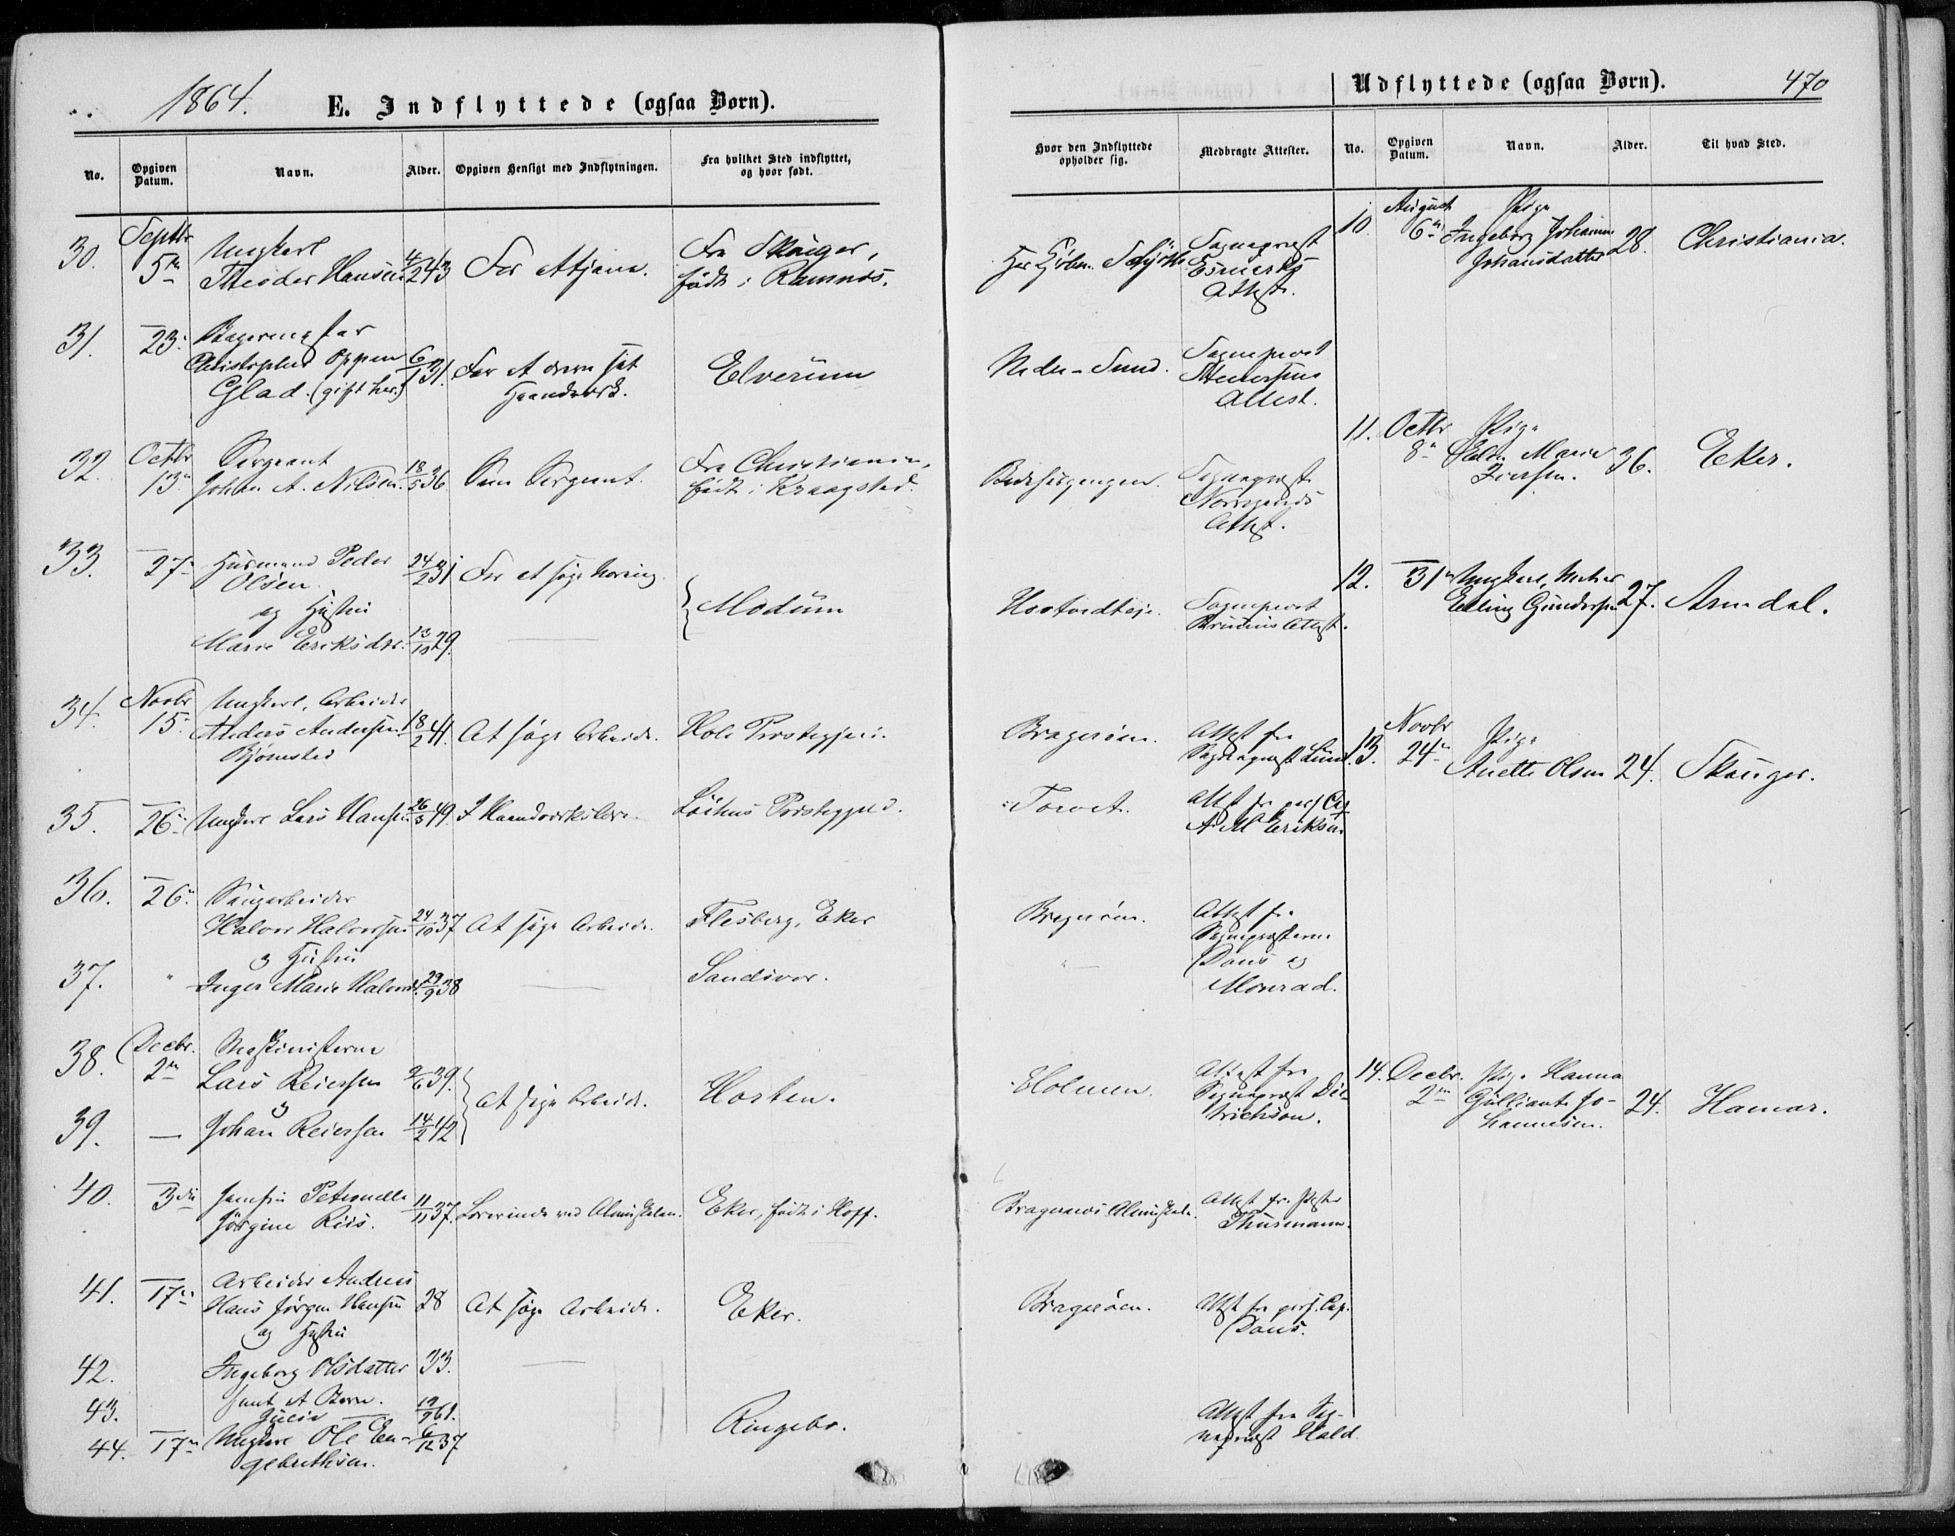 1864.
E. Indflyttede (ogsaa Børn).
No.
Opgiven Datum.
Navn.
Alder.
Opgiven Hensigt med Indflytningen.
Fra hvilket Sted indflyttet, og hvor født.
30.
Septbr
5te
Ungkarl
Theodor Hansen
4/2 43
For at tjene.
Fra Skouger,
født i Ramnæs.
31.
— 23.
Bagermester
Christopher Oppen
Glad. (gift her)
6/1 31.
For at drive sit
Haandværk.
Elverum
32.
Octbr
13.
Sergeant
Johan A. Nilsen.
18/5 36
Som Sergeant.
Fra Christiania,
født i Kraagstad.
33.
— 27
Husmand Peder
Olsen
og Hustru
Marie Eriksdtr.
31
13/10 29.
For at søge Næring.
Modum
34.
Novbr
15
Ungkarl, Arbeider
Anders Andersen
Bjørnstad
18/2 41.
At søge Arbeide.
Hole Præstegjeld.
35.
— 26
Ungkarl Lars Hansen
26/3 49.
I Haandværkslære.
Præstegjeld.
36.
— 26
Saugarbeider
Halvor Halvorsen
og Hustru
24/10 37
At søge Arbeide.
Flesberg, Eker
37.
"
Inger Marie Halvorsd.
29/9 38
Sandsvær.
38.
Decbr.
2den
Maskinisterne
Lars Reiersen
og
2/6 39.
At søge Arbeide.
Horten.
39.
—
Johan Reiersen
14/2 42
40.
3die
Jomfru Petronelle
Jørgine Riis.
11/11 37.
Lærerinde ved Almueskolen.
Eker, født i Hoff.
41.
— 17
Arbeider Andreas
Hans Jørgen Hansen
og Hustru
28
At søge Arbeide.
Eker.
42.
Ingeborg Olsdatter
33.
43.
samt et Barn.
Julie —
61.
44.
— 17
Ungkarl Ole En-
gebrethsen.
6/12 37
Ringebo.
Hvor den Indflyttede opholder sig.
Medbragte Attester.
Sognepræst
Attest.
Nedre-Sund.
Sognepræst
Attest.
Sognepræst
Attest.
Sognepræst
Attest.
Bragerøen.
Attest fra
Sognepræst Lund.
Torvet.
Attest fra pers. Cap
A M Eriksen
Bragerøen.
Attest fra
Sognepræsterne
Daus og
Monrad.
Holmen.
Attest fra
Sognepræst Die-
trichson.
Bragernæs Almueskole.
Attest fra Pastor
Thurmann.
Bragerøen.
Attest fra pers. Cap.
Daus.
Attest fra Sog-
nepræst Hald.
Udflyttede (ogsaa Børn).
470
No.
Opgiven Datum.
Navn.
Alder.
Til hvad Sted.
10
August
6te
Pige
Ingeborg Johanne
Johansdatter
28.
Christiania.
11.
Octbr
8
Pige
Marie
36.
Eker.
12.
— 31
Ungkarl,
Elling Gundersen
27.
Arendal.
13.
Novbr
24
Pige
Anette Olsen
24.
Skouger.
14.
Decbr.
2den
Pige Hanna
Gulliante Jo-
hannesen.
24.
Hamar.